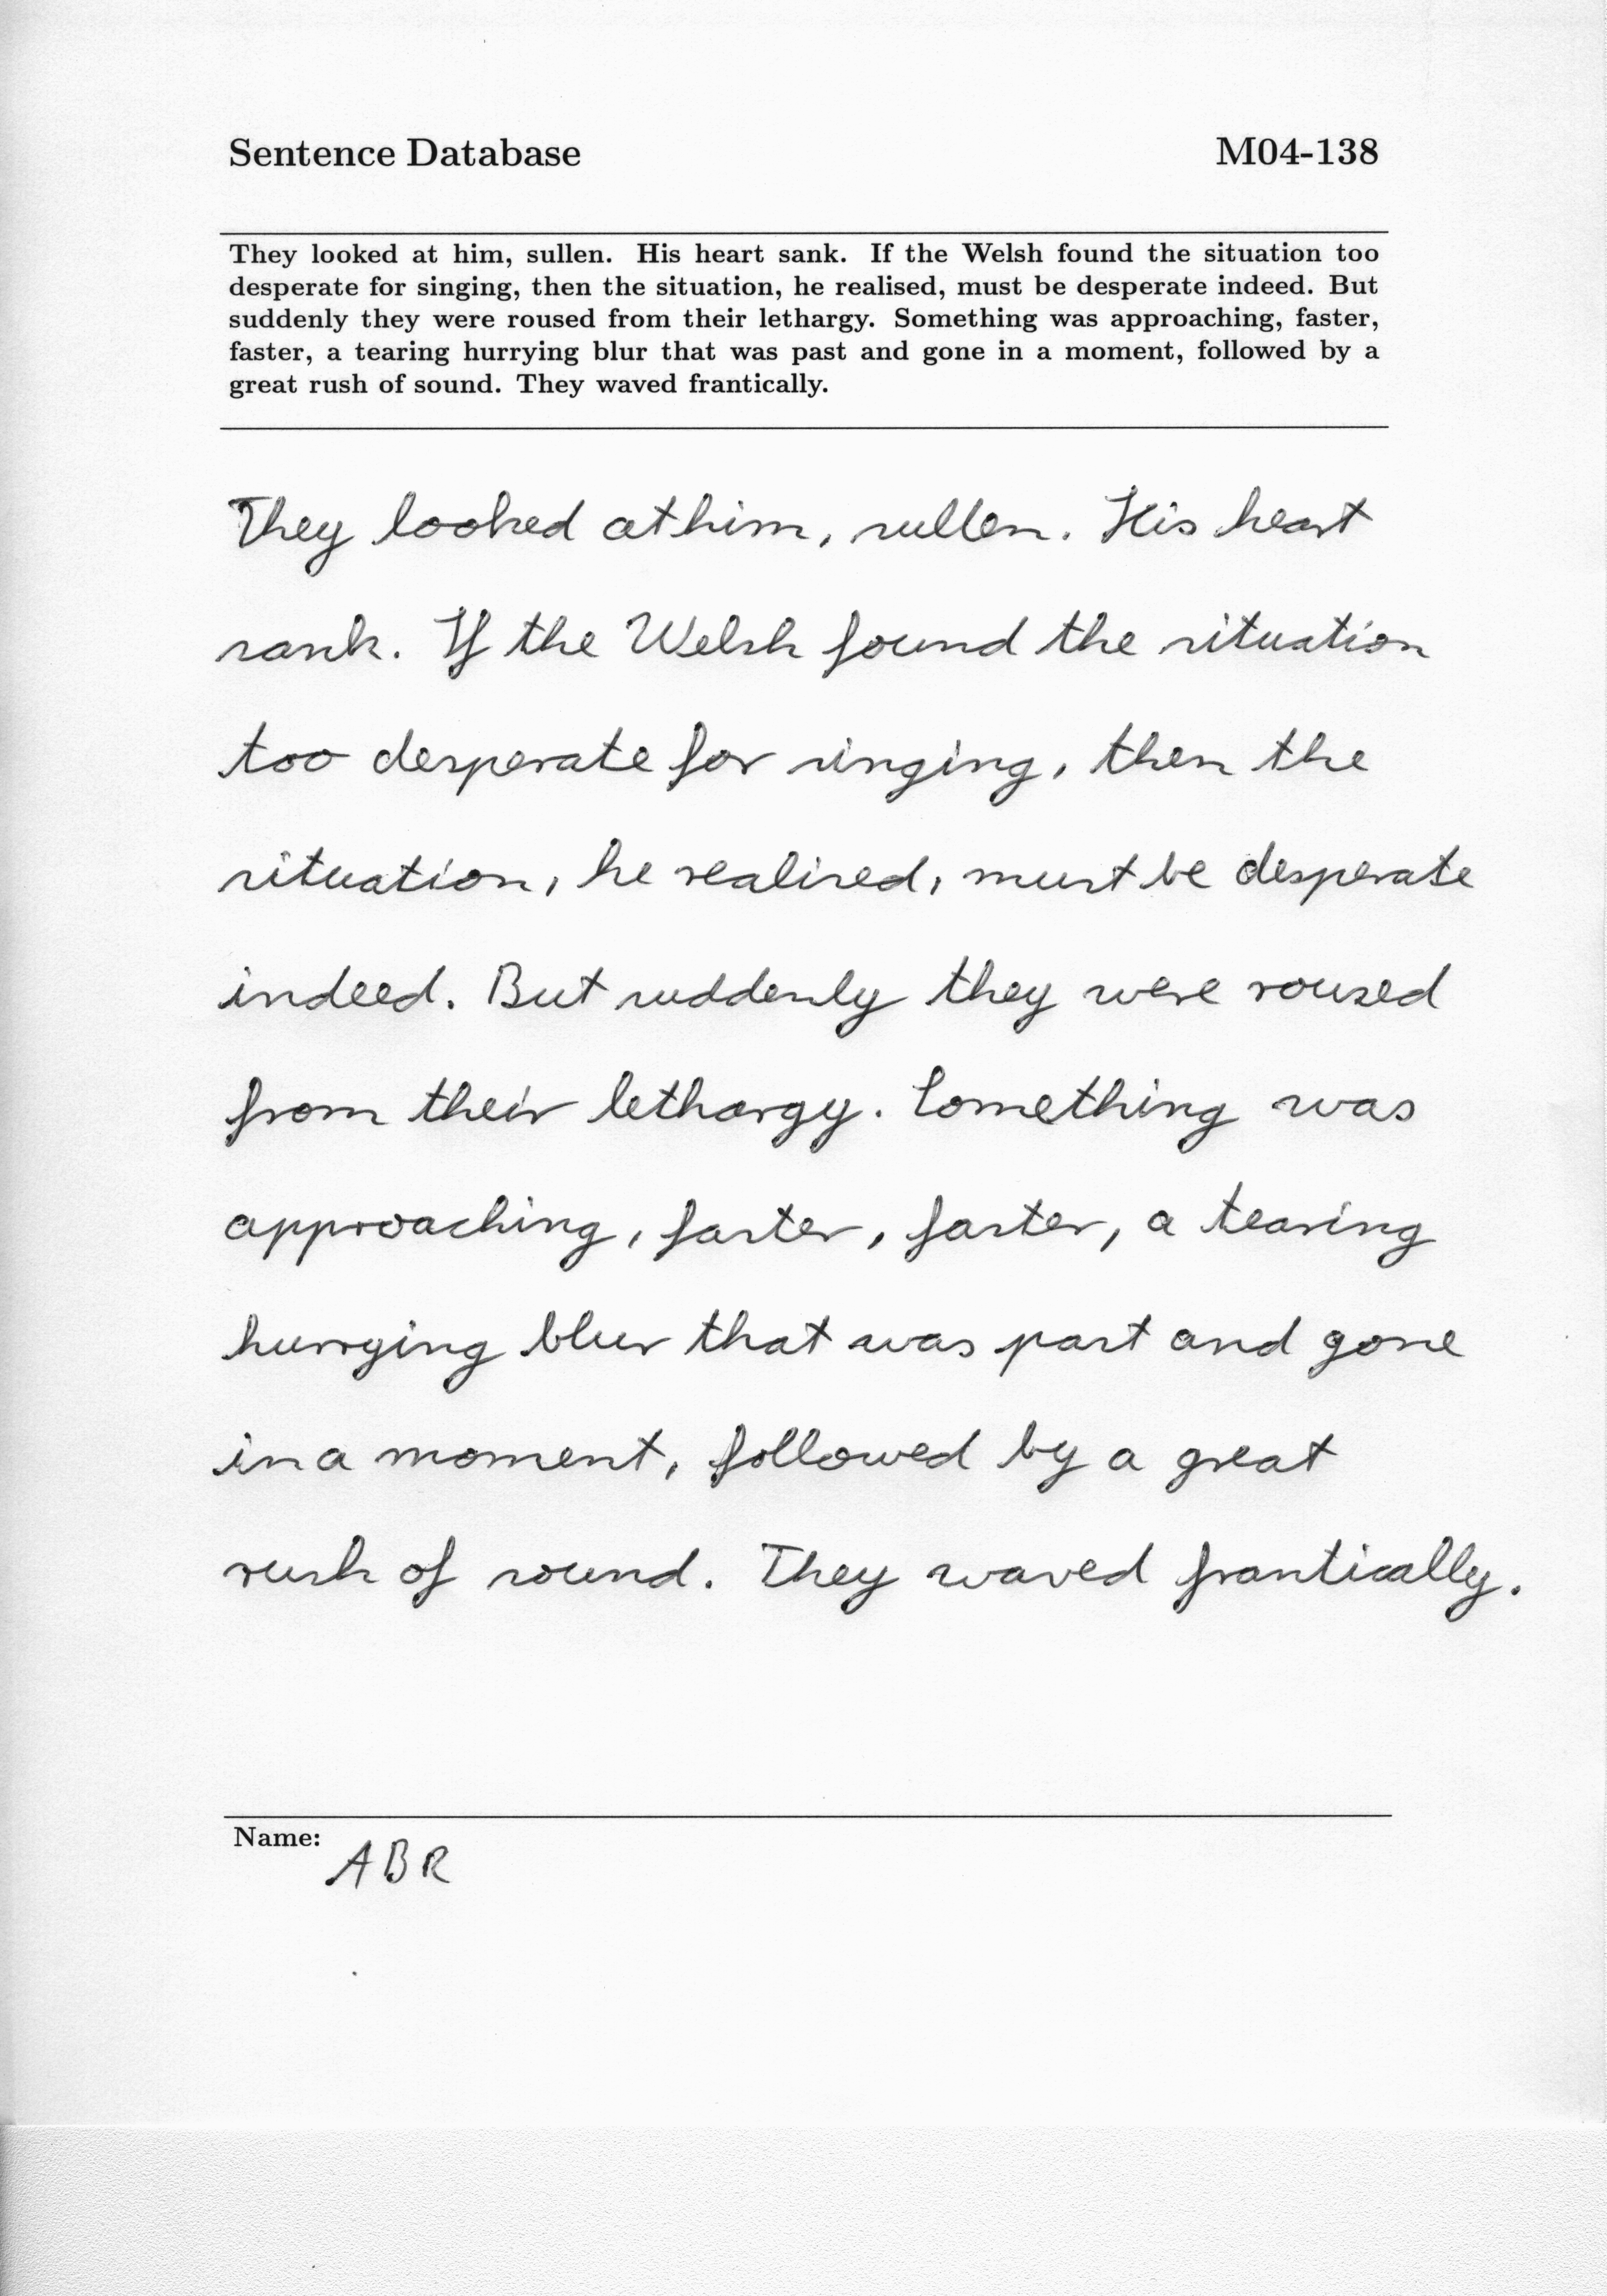 Sentence Database M04-138
They looked at him, sullen. His heart sank. If the Welsh found the situation too
desperate for singing, then the situation, he realised, must be desperate indeed. But
suddenly they were roused from their lethargy. Something was approaching, faster,
faster, a tearing hurrying blur that was past and gone in a moment, followed by a
great rush of sound. They waved frantically.
They looked at him, sullen. His heart
sank. If the Welsh found the situation
too desperate for singing, then the
situation, he realised, must be desperate
indeed. But suddenly they were roused
from their lethargy. Something was
approaching, faster, faster, a tearing
hurrying blur that was past and gone
in a moment, followed by a great
rush of sound. They waved frantically.
Name:
ABR